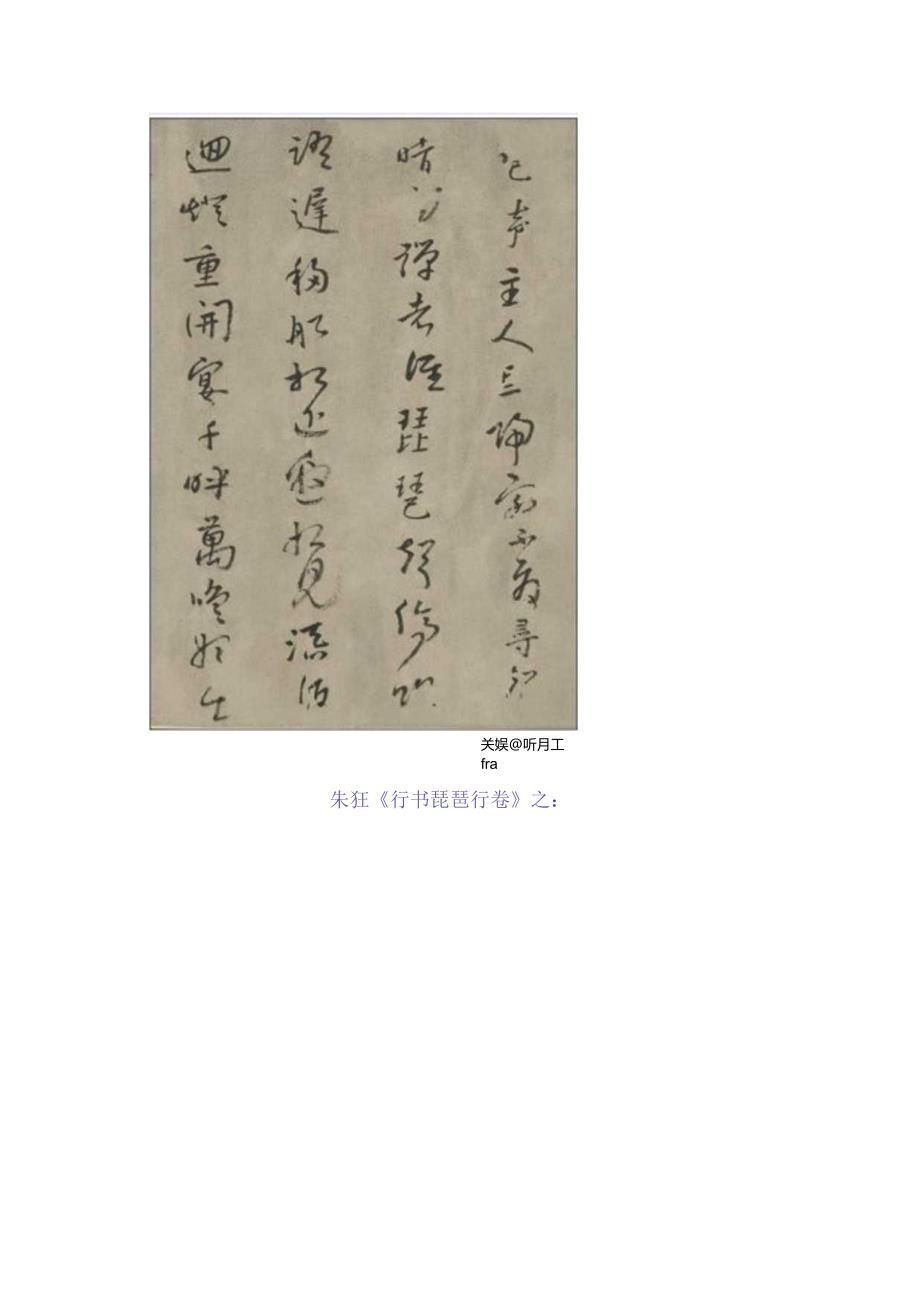 琶声主人忘歸客不發尋聲
暗問彈者誰琵琶聲停欲
語遲移船相近邀相見添酒
迴燈重開宴千呼萬喚始出
关娱@听月工
fra
朱狂《行书琵琶行卷》之：